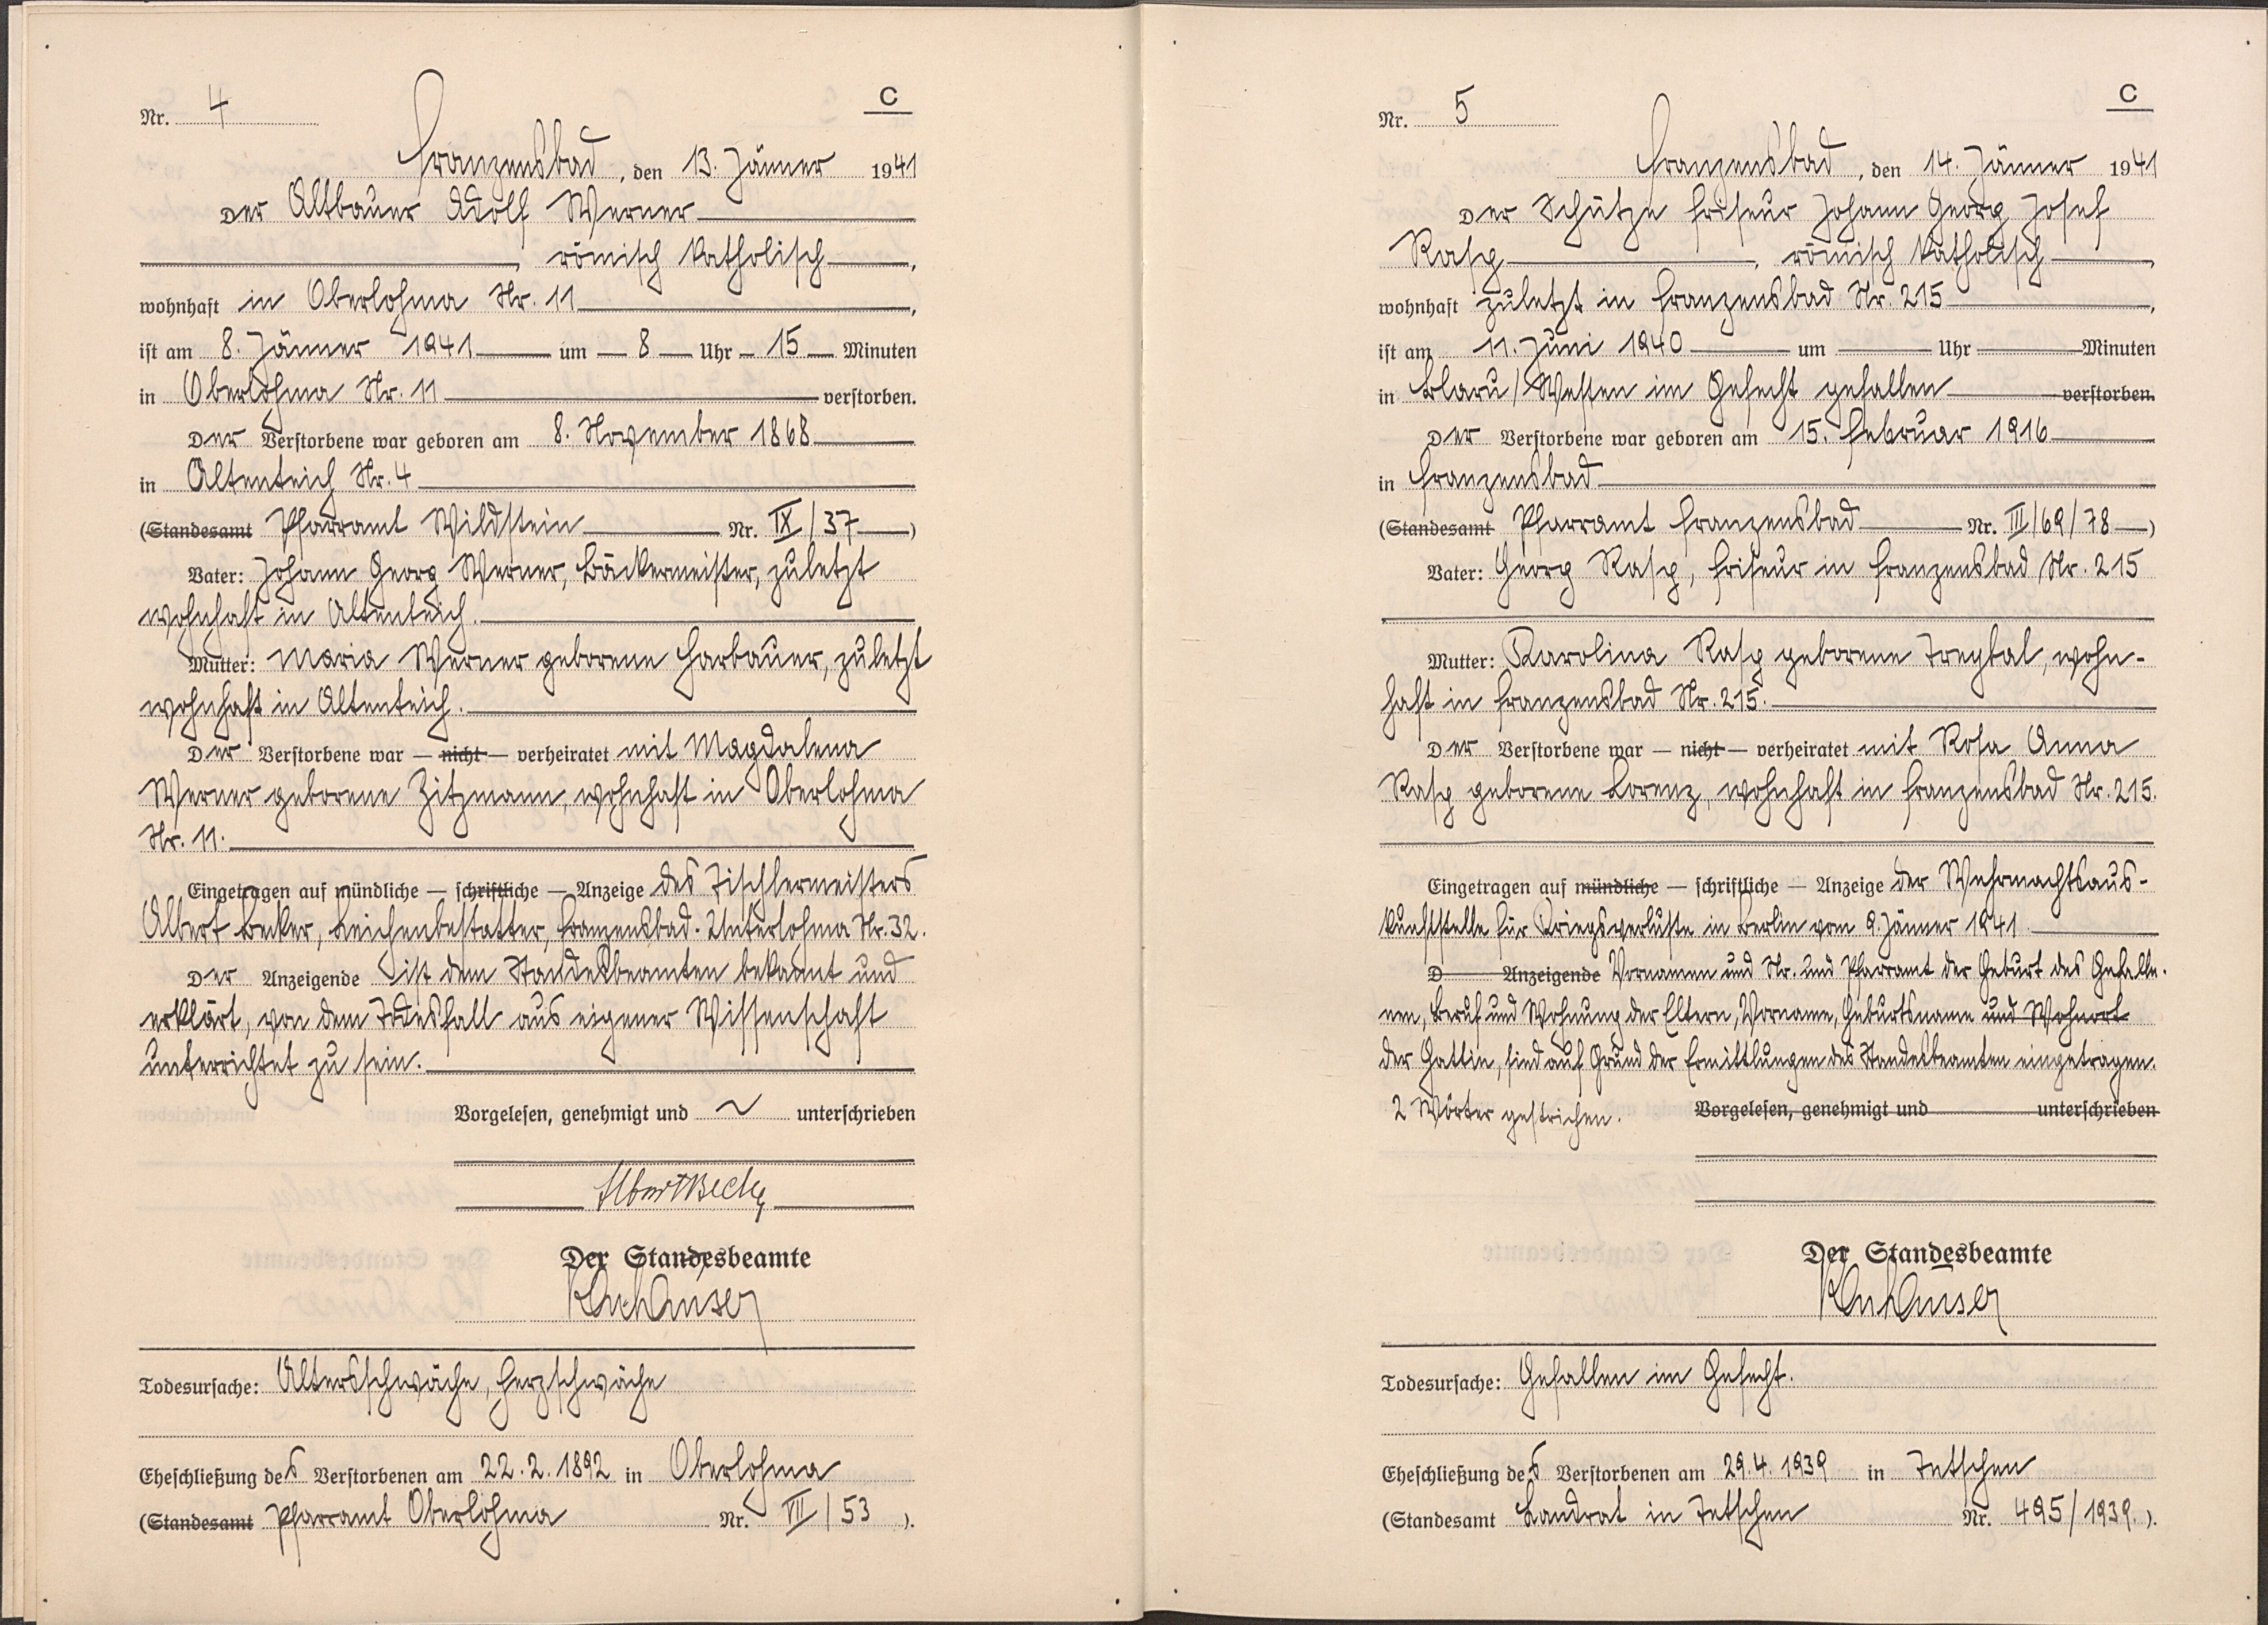 Nr. 4
C
Franzensbad, den 13. Jänner 1941
Der Altbauer Adolf Werner
, römisch katholisch,
wohnhaft in Oberlohma Nr. 11,
ist am 8. Jänner 1941 um 8 Uhr 15 Minuten
in Oberlohma Nr. 11 verstorben.
Der Verstorbene war geboren am 8. November 1868
in Altenteich Nr. 4
(Standesamt Pfarramt Wildstein Nr. IX/37)
Vater: Johann Georg Werner, Bäckermeister, zuletzt
wohnhaft in Altenteich.
Mutter: Maria Werner geborene Harbauer, zuletzt
wohnhaft in Altenteich.
Der Verstorbene war — nicht — verheiratet mit Magdalena
Werner geborene Zitzmann, wohnhaft in Oberlohma
Nr. 11.
Eingetragen auf mündliche — schriftliche — Anzeige des Tischlermeisters
Albert Becker, Leichenbestatter, Franzensbad-Unterlohma Nr. 32.
Der Anzeigende ist dem Standesbeamten bekannt und
erklärt, von dem Todesfall aus eigener Wissenschaft
unterrichtet zu sein.
Vorgelesen, genehmigt und unterschrieben
Albert Becker
Der Standesbeamte
Todesursache: Altersschwäche, Herzschwäche
Eheschließung des Verstorbenen am 22.2.1892 in Oberlohma
(Standesamt Pfarramt Oberlohma Nr. VII/53).
Nr. 5
C
Franzensbad, den 14. Jänner 1941
Der Schütze Friseur Johann Georg Josef
Rasp, römisch katholisch,
wohnhaft zuletzt in Franzensbad Nr. 215,
ist am 11. Juni 1940 um Uhr Minuten
in Blaru/Westen im Gefecht gefallen verstorben.
Der Verstorbene war geboren am 15. Februar 1916
in Franzensbad
(Standesamt Pfarramt Franzensbad Nr. III/69/78)
Vater: Georg Rasp, Friseur in Franzensbad Nr. 215
Mutter: Karolina Rasp geborene Treybal, wohn-
haft in Franzensbad Nr. 215.
Der Verstorbene war — nicht — verheiratet mit Rosa Anna
Rasp geborene Lorenz, wohnhaft in Franzensbad Nr. 215.
Eingetragen auf mündliche — schriftliche — Anzeige der Wehrmachtsaus-
kunftstelle für Kriegsverluste in Berlin vom 9. Jänner 1941.
D Anzeigende Vornamen und Nr. und Pfarramt der Geburt des Gefalle-
nen, Beruf und Wohnung der Eltern, Vorname, Geburtsname und Wohnort
der Gattin, sind auf Grund der Ermittlungen des Standesbeamten eingetragen.
2 Wörter gestrichen. Vorgelesen, genehmigt und unterschrieben
Der Standesbeamte
Todesursache: Gefallen im Gefecht.
Eheschließung des Verstorbenen am 29.4.1939 in Tetschen
(Standesamt Landrat in Tetschen Nr. 495/1939.).